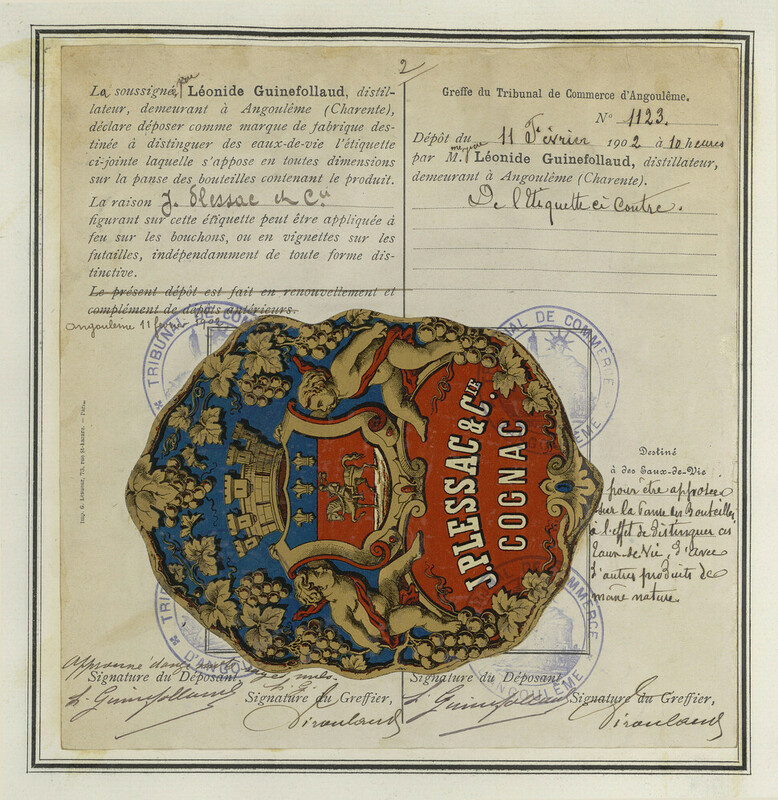 2
La soussigné, Léonide Guinefollaud, distil-
lateur, demeurant à Angoulême (Charente),
déclare déposer comme marque de fabrique des-
tinée à distinguer des eaux-de-vie l'étiquette
ci-jointe laquelle s'appose en toutes dimensions
sur la panse des bouteilles contenant le produit.
La raison J. Plessac & Cie
figurant sur cette étiquette peut être appliquée à
feu sur les bouchons, ou en vignettes sur les
futailles, indépendamment de toute forme dis-
tinctive.
Le présent dépôt est fait en renouvellement et
complément de dépôts antérieurs.
Angoulême 11 février 1902
Greffe du Tribunal de Commerce d'Angoulême.
N° 1123.
Dépôt du 11 Février 1902 à 10 heures
par M. Léonide Guinefollaud, distillateur,
demeurant à Angoulême (Charente).
De l'Etiquette ci Contre.
TRIBUNAL DE COM
NAL DE COMMERCE
J. PLESSAC & CIE.
COGNAC
Destiné
à des Eaux-de-Vie
pour être apposée
sur la Panse des Bouteilles
à l'effet de Distinguer ces
Eaux-de-Vie, d'avec
d'autres produits de
même nature
Signature du Déposant
L. Guinefollaud
Signature du Greffier,
Signature du Déposant
L. Guinefollaud
Signature du Greffier,